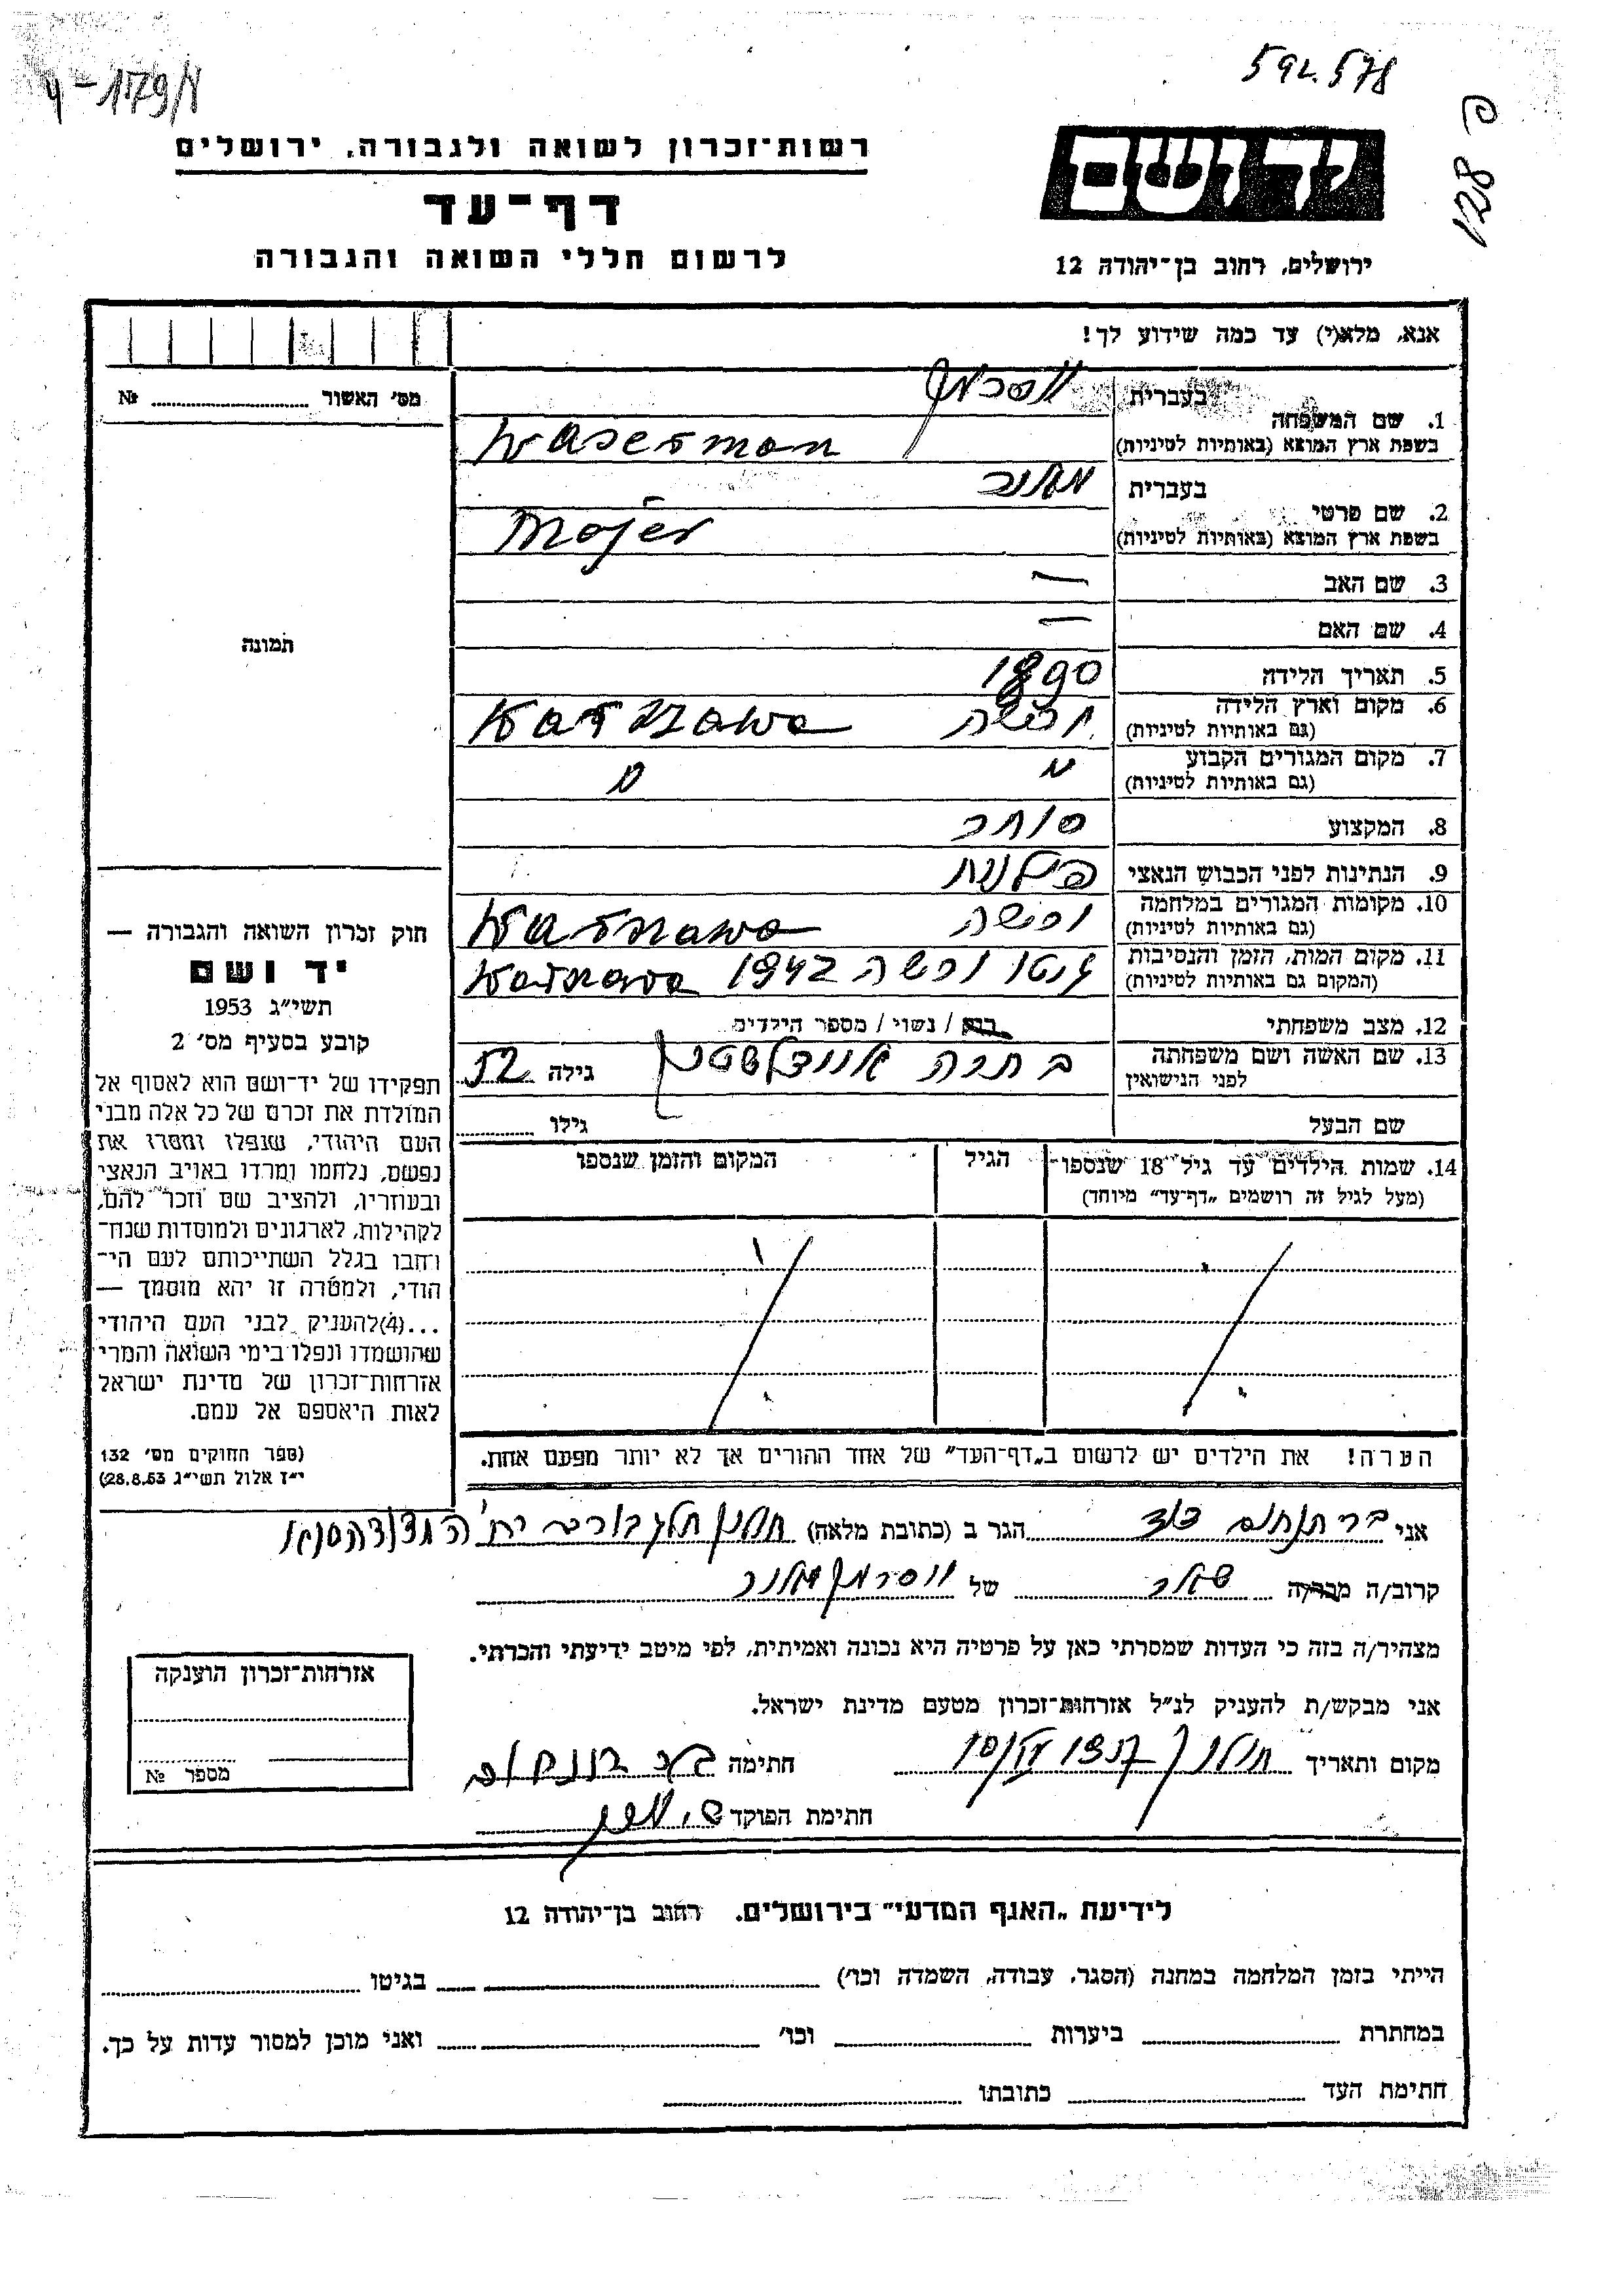 592.578
128 פ
רשות־זכרון לשואה ולגבורה, ירושלים
דף־עד
לרשום חללי השואה והגבורה
ידושם
ירושלים, רחוב בן־יהודה 12
אנא, מלא(י) עד כמה שידוע לך!
מס׳ האשור № ........
תמונה
1. שם המשפחה
בעברית וסרמן
בשפת ארץ המוצא (באותיות לטיניות) Waserman
2. שם פרטי
בעברית מאיר
בשפת ארץ המוצא (באותיות לטיניות) Majer
3. שם האב —
4. שם האם —
5. תאריך הלידה 1890
6. מקום וארץ הלידה
(גם באותיות לטיניות) ורשה Warszawa
7. מקום המגורים הקבוע
(גם באותיות לטיניות)
8. המקצוע סוחר
9. הנתינות לפני הכבוש הנאצי פולנית
10. מקומות המגורים במלחמה
(גם באותיות לטיניות) ורשה Warszawa
11. מקום המות, הזמן והנסיבות
(המקום גם באותיות לטיניות) גטו ורשה 1942 Warszawa
12. מצב משפחתי רווק / נשוי / מספר הילדים
13. שם האשה ושם משפחתה
לפני הנישואין גילה 52
שם הבעל גילו ........
14. שמות הילדים עד גיל 18 שנספו הגיל המקום והזמן שנספו
(מעל לגיל זה רושמים „דף־עד” מיוחד)
הערה! את הילדים יש לרשום ב„דף־העד” של אחד ההורים אך לא יותר מפעם אחת.
חוק זכרון השואה והגבורה —
יד ושם
תשי״ג 1953
קובע בסעיף מס׳ 2
תפקידו של יד־ושם הוא לאסוף אל
המולדת את זכרם של כל אלה מבני
העם היהודי, שנפלו ומסרו את
נפשם, נלחמו ומרדו באויב הנאצי
ובעוזריו, ולהציב שם וזכר להם,
לקהילות, לארגונים ולמוסדות שנח־
רבו בגלל השתייכותם לעם הי־
הודי, ולמטרה זו יהא מוסמך —
...(4) להעניק לבני העם היהודי
שהושמדו ונפלו בימי השואה והמרי
אזרחות־זכרון של מדינת ישראל
לאות היאספם אל עמם.
(ספר החוקים מס׳ 132
י״ז אלול תשי״ג 28.8.53)
אני בר תנחום הגר ב (כתובת מלאה) חולון תל גבורים
קרוב/ה מכר/ה שאר של וסרמן מאיר
מצהיר/ה בזה כי העדות שמסרתי כאן על פרטיה היא נכונה ואמיתית, לפי מיטב ידיעתי והכרתי.
אני מבקש/ת להעניק לנ״ל אזרחות־זכרון מטעם מדינת ישראל.
מקום ותאריך חולון חתימה
חתימת הפוקד
אזרחות־זכרון הוענקה
מספר №
לידיעת „האגף המדעי” בירושלים. רחוב בן־יהודה 12
הייתי בזמן המלחמה במחנה (הסגר, עבודה, השמדה וכו׳) ........ בגיטו ........
במחתרת ........ ביערות ........ וכו׳ ........ ואני מוכן למסור עדות על כך.
חתימת העד ........ כתובתו ........